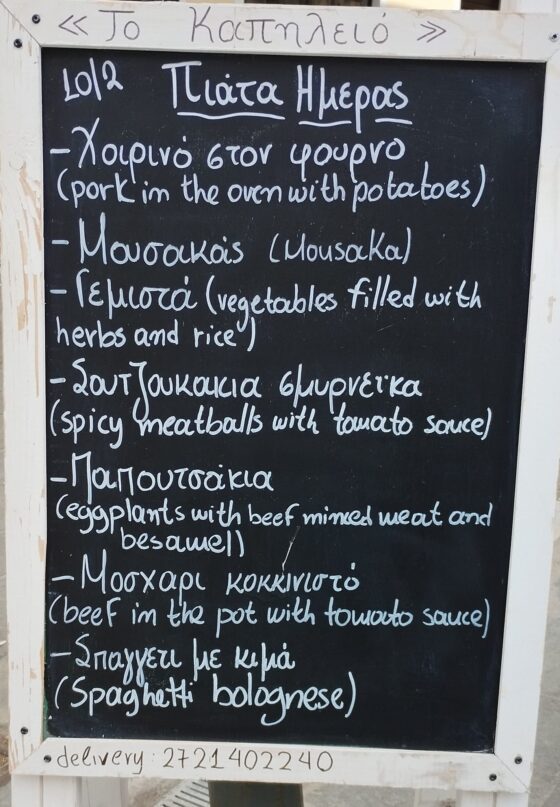 « Το Καπηλειό »
10/2 Πιάτα Ημέρας
- Χοιρινό στον φούρνο
(pork in the oven with potatoes)
- Μουσακάς (Mousaka)
- Γεμιστά (vegetables filled with
herbs and rice)
- Σουτζουκακια σμυρνεϊκα
(spicy meatballs with tomato sauce)
- Παπουτσάκια
(eggplants with beef minced meat and
besamell)
- Μοσχαρι κοκκινιστό
(beef in the pot with tomato sauce)
- Σπαγγετι με κιμά
(Spaghetti bolognese)
delivery: 2721402240